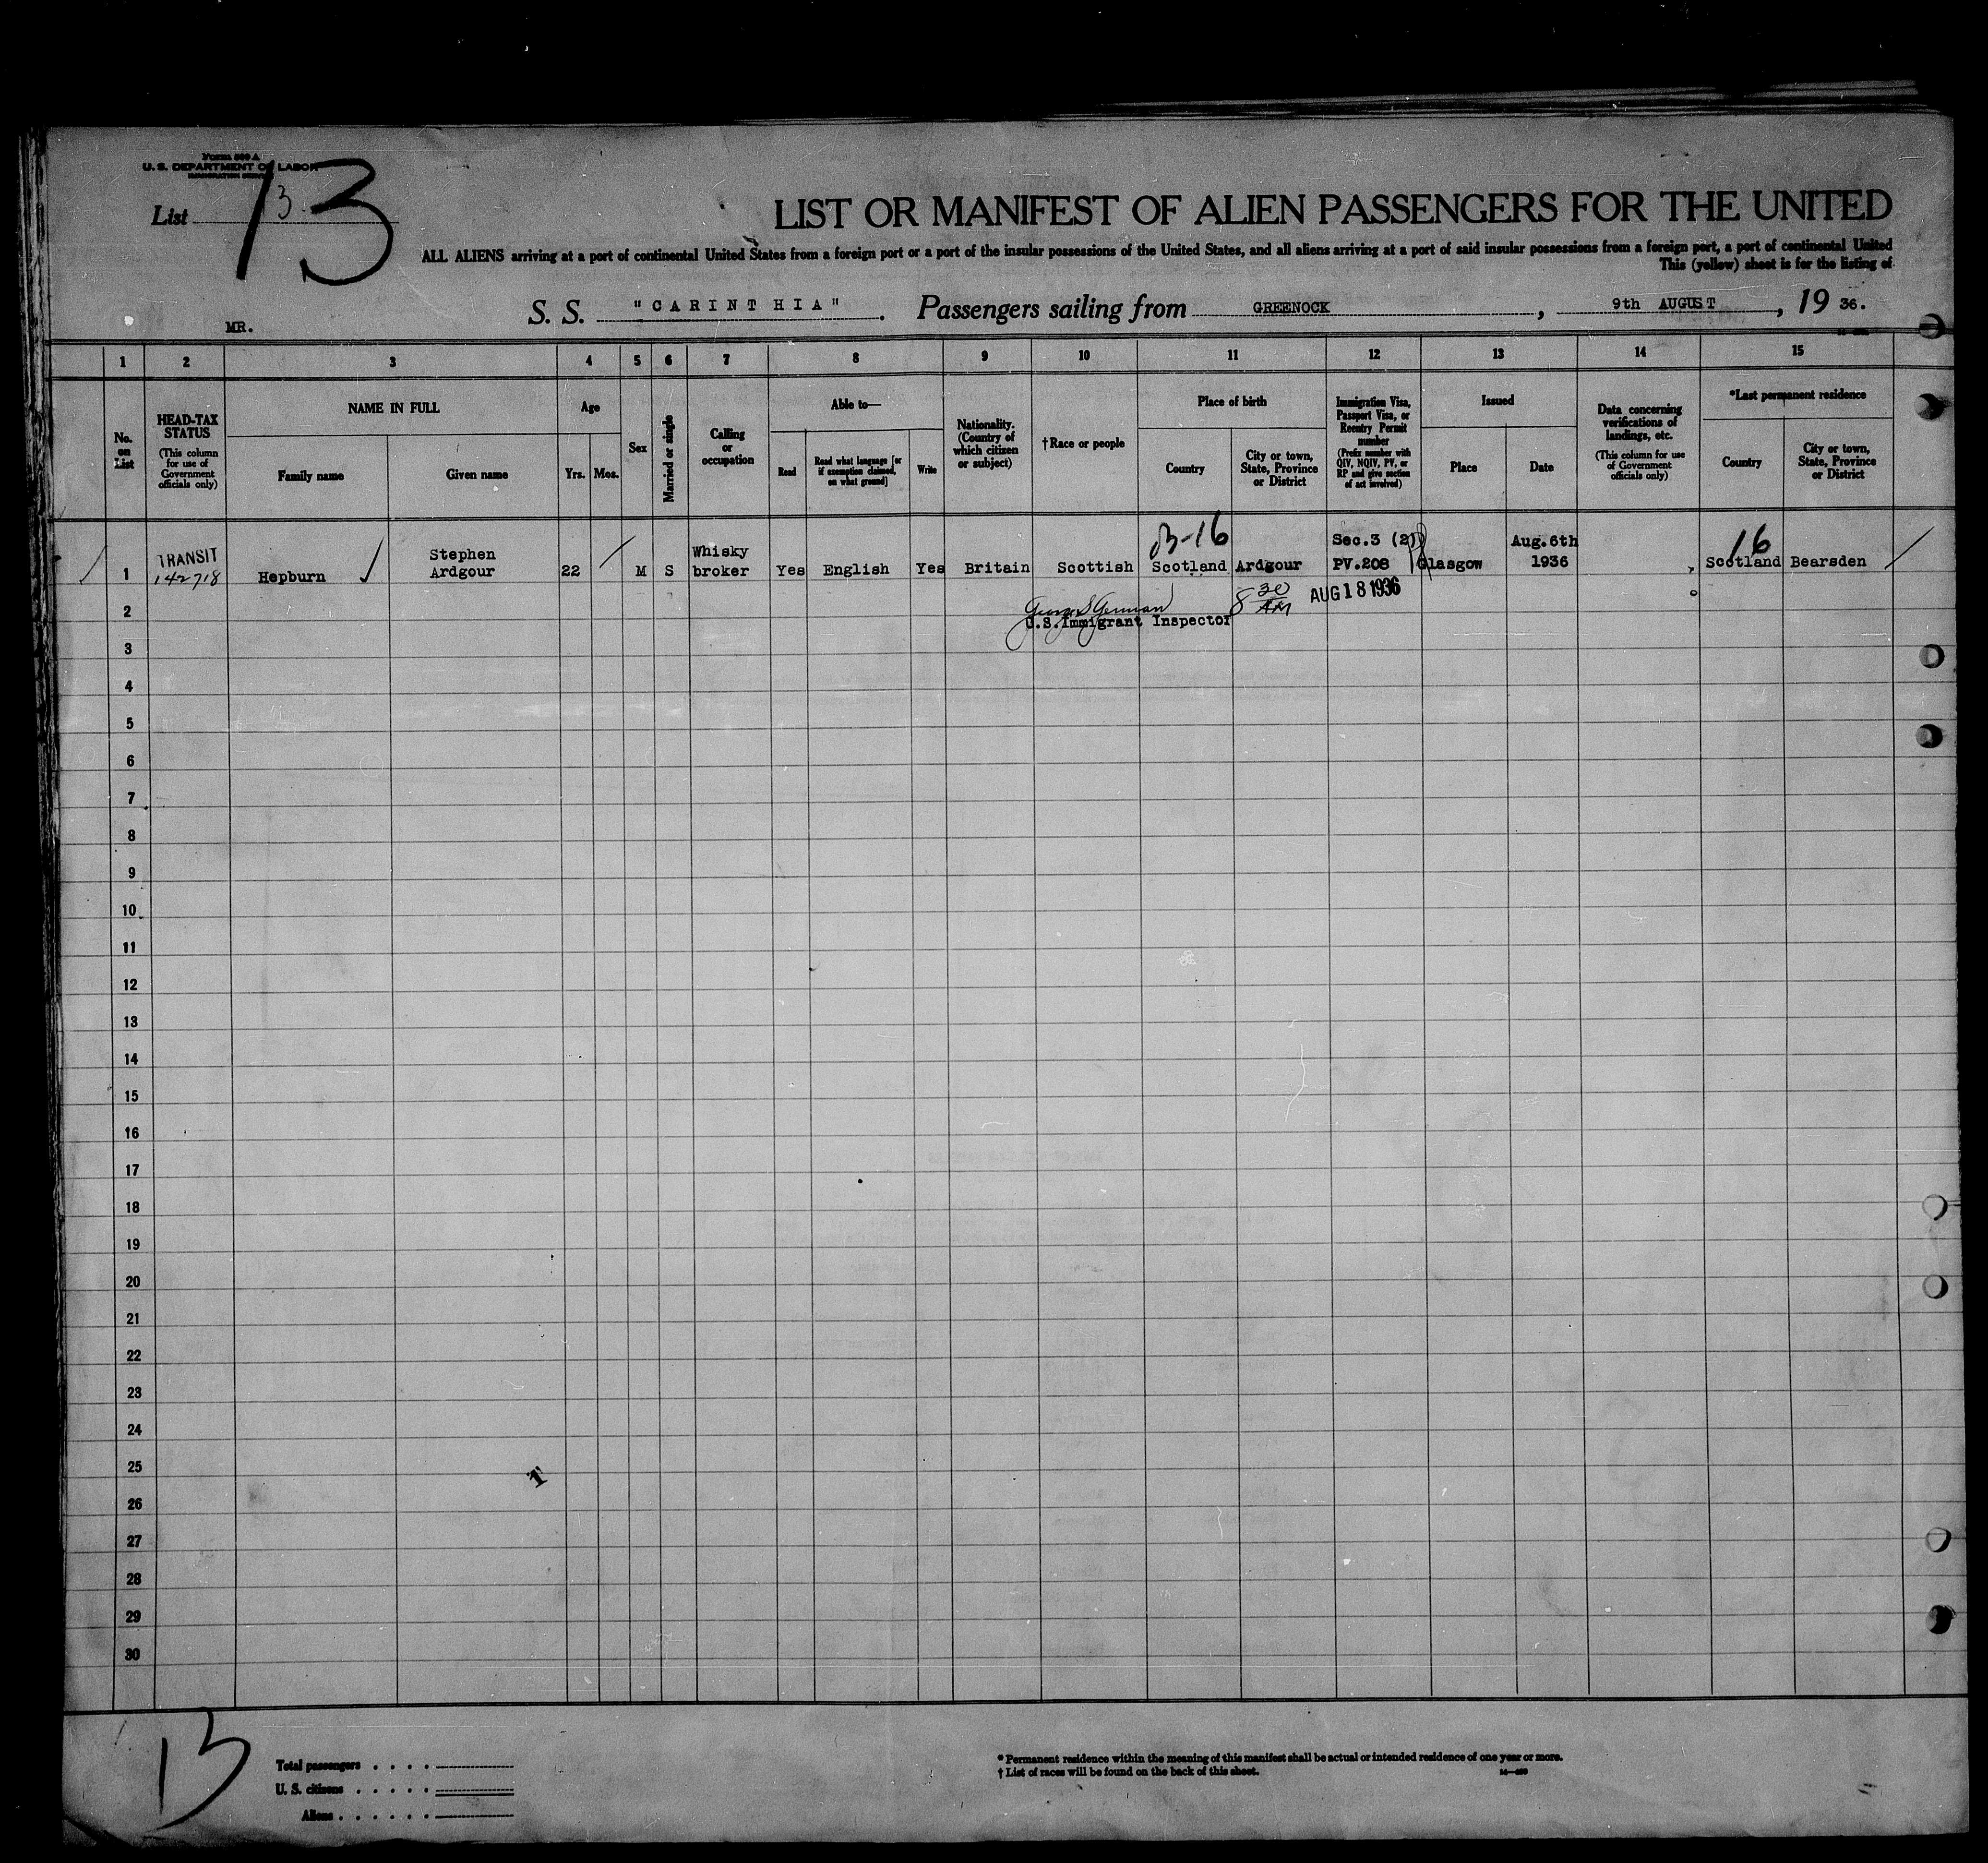 Form 500 A
U. S. DEPARTMENT OF LABOR
IMMIGRATION SERVICE
List 13
13
LIST OR MANIFEST OF ALIEN PASSENGERS FOR THE UNITED
ALL ALIENS arriving at a port of continental United States from a foreign port or a port of the insular possessions of the United States, and all aliens arriving at a port of said insular possessions from a foreign port, a port of continental United
This (yellow) sheet is for the listing of
S. S. "CARINTHIA". Passengers sailing from GREENOCK, 9th AUGUST, 19 36.
MR.
1 2 3 4 5 6 7 8 9 10 11 12 13 14 15
No. on List
HEAD-TAX STATUS
(This column for use of Government officials only)
NAME IN FULL
Family name
Given name
Age
Yrs.
Mos.
Sex
Married or single
Calling or occupation
Able to—
Read
Read what language [or if exemption claimed, on what ground]
Write
Nationality. (Country of which citizen or subject)
†Race or people
Place of birth
Country
City or town, State, Province or District
Immigration Visa, Passport Visa, or Reentry Permit number
(Prefix number with QIV, NQIV, PV, or RP and give section of act involved)
Issued
Place
Date
Data concerning verifications of landings, etc.
(This column for use of Government officials only)
*Last permanent residence
Country
City or town, State, Province or District
1 TRANSIT 142718 Hepburn Stephen Ardgour 22 M S Whisky broker Yes English Yes Britain Scottish Scotland Ardgour Sec.3 (2) PV.208 Glasgow Aug.6th 1936 16 Scotland Bearsden
George S German 8 30 AM AUG 18 1936
U.S.Immigrant Inspector
2
3
4
5
6
7
8
9
10
11
12
13
14
15
16
17
18
19
20
21
22
23
24
25
26
27
28
29
30
13
Total passengers
U. S. citizens
Aliens
* Permanent residence within the meaning of this manifest shall be actual or intended residence of one year or more.
† List of races will be found on the back of this sheet.